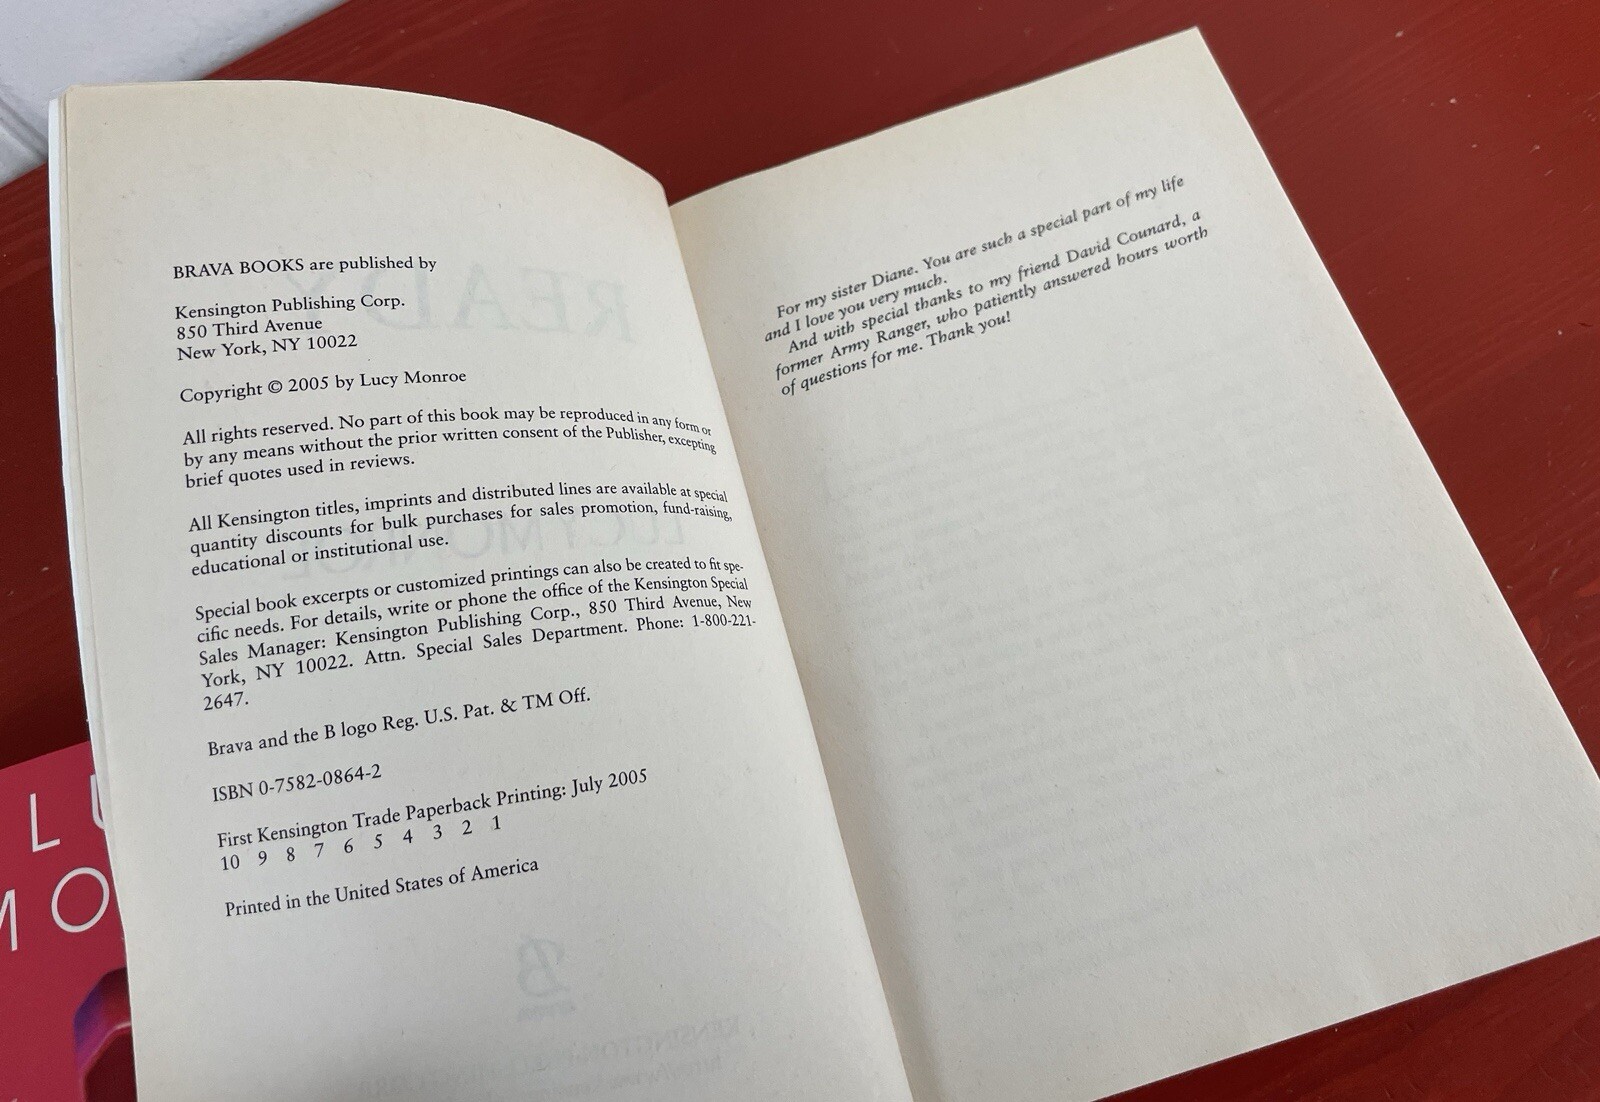 BRAVA BOOKS are published by
Kensington Publishing Corp.
850 Third Avenue
New York, NY 10022
Copyright © 2005 by Lucy Monroe
All rights reserved. No part of this book may be reproduced in any form or
by any means without the prior written consent of the Publisher, excepting
brief quotes used in reviews.
All Kensington titles, imprints and distributed lines are available at special
quantity discounts for bulk purchases for sales promotion, fund-raising,
educational or institutional use.
Special book excerpts or customized printings can also be created to fit spe-
cific needs. For details, write or phone the office of the Kensington Special
Sales Manager: Kensington Publishing Corp., 850 Third Avenue, New
York, NY 10022. Attn. Special Sales Department. Phone: 1-800-221-
2647.
Brava and the B logo Reg. U.S. Pat. & TM Off.
ISBN 0-7582-0864-2
First Kensington Trade Paperback Printing: July 2005
10 9 8 7 6 5 4 3 2 1
Printed in the United States of America
For my sister Diane. You are such a special part of my life
and I love you very much.
And with special thanks to my friend David Counard, a
former Army Ranger, who patiently answered hours worth
of questions for me. Thank you!
READY
LUCY MONROE
B
LU
MO